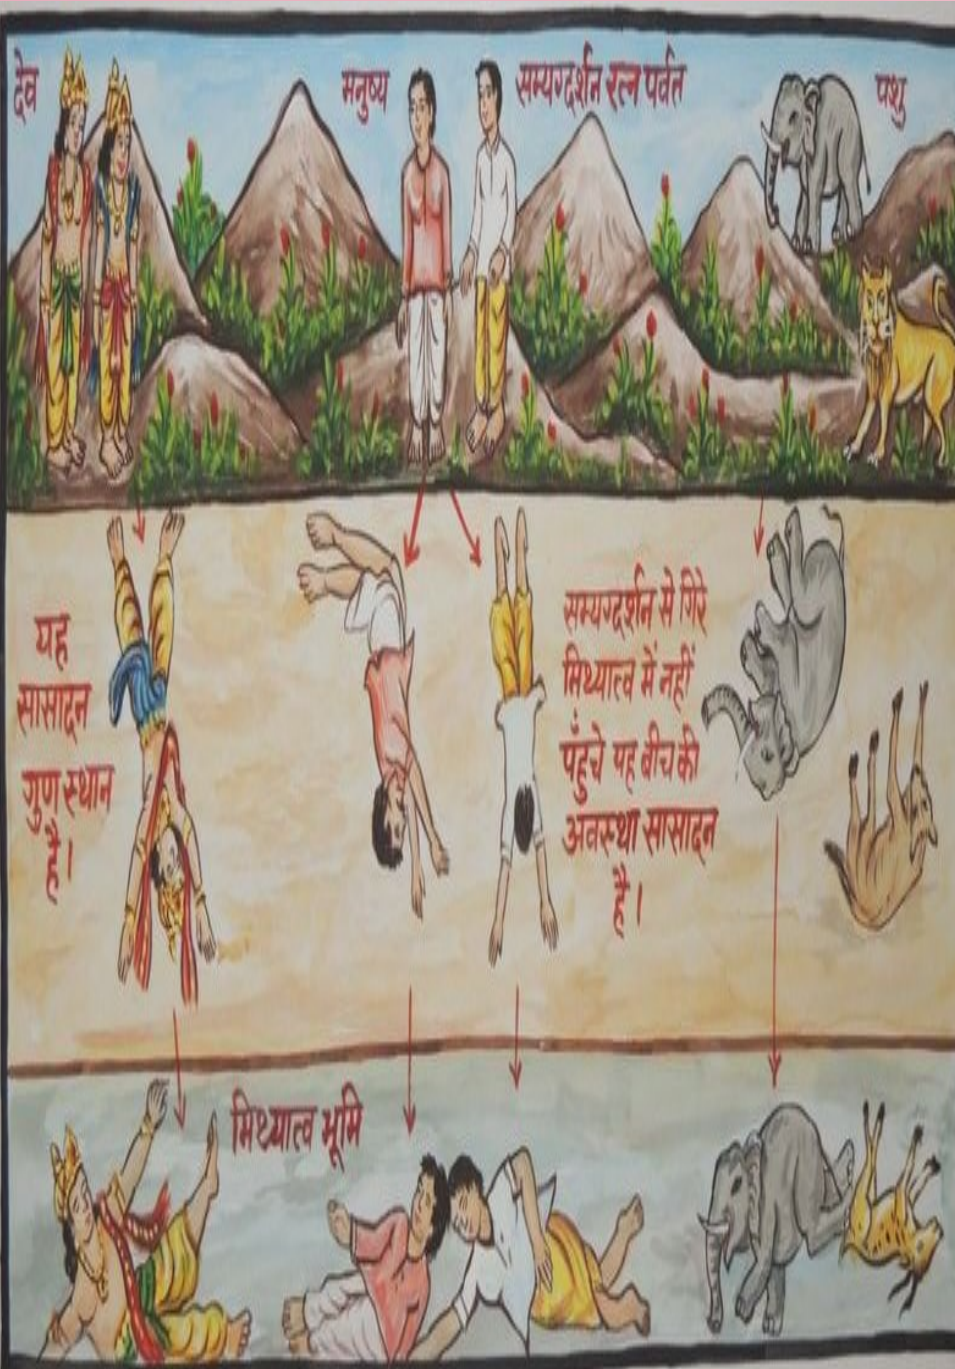 देव
मनुष्य
सम्यग्दर्शन रत्न पर्वत
पशु
यह
सासादन
गुण स्थान
है।
सम्यग्दर्शन से गिरे
मिथ्यात्व में नहीं
पहुँचे यह बीच की
अवस्था सासादन
है।
मिथ्यात्व भूमि